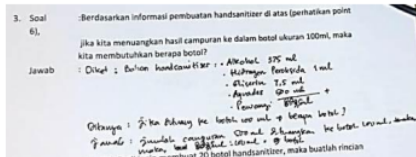 3. Soal :Berdasarkan informasi pembuatan handsanitizer di atas (perhatikan point
6),
jika kita menuangkan hasil campuran ke dalam botol ukuran 100ml, maka
kita membutuhkan berapa botol?
Jawab : Diket : Bahan handsanitizer : - Alkohol 375 ml
- Hidrogen Peroksida 1 ml
- Gliserin 7,5 ml
- Aquades
- Pewangi +
Ditanya : Jika dituang ke botol 100 ml = berapa botol?
Jawab : Jumlah campuran 500 ml dituangkan ke botol 100 ml,
maka,
20 botol handsanitizer, maka buatlah rincian